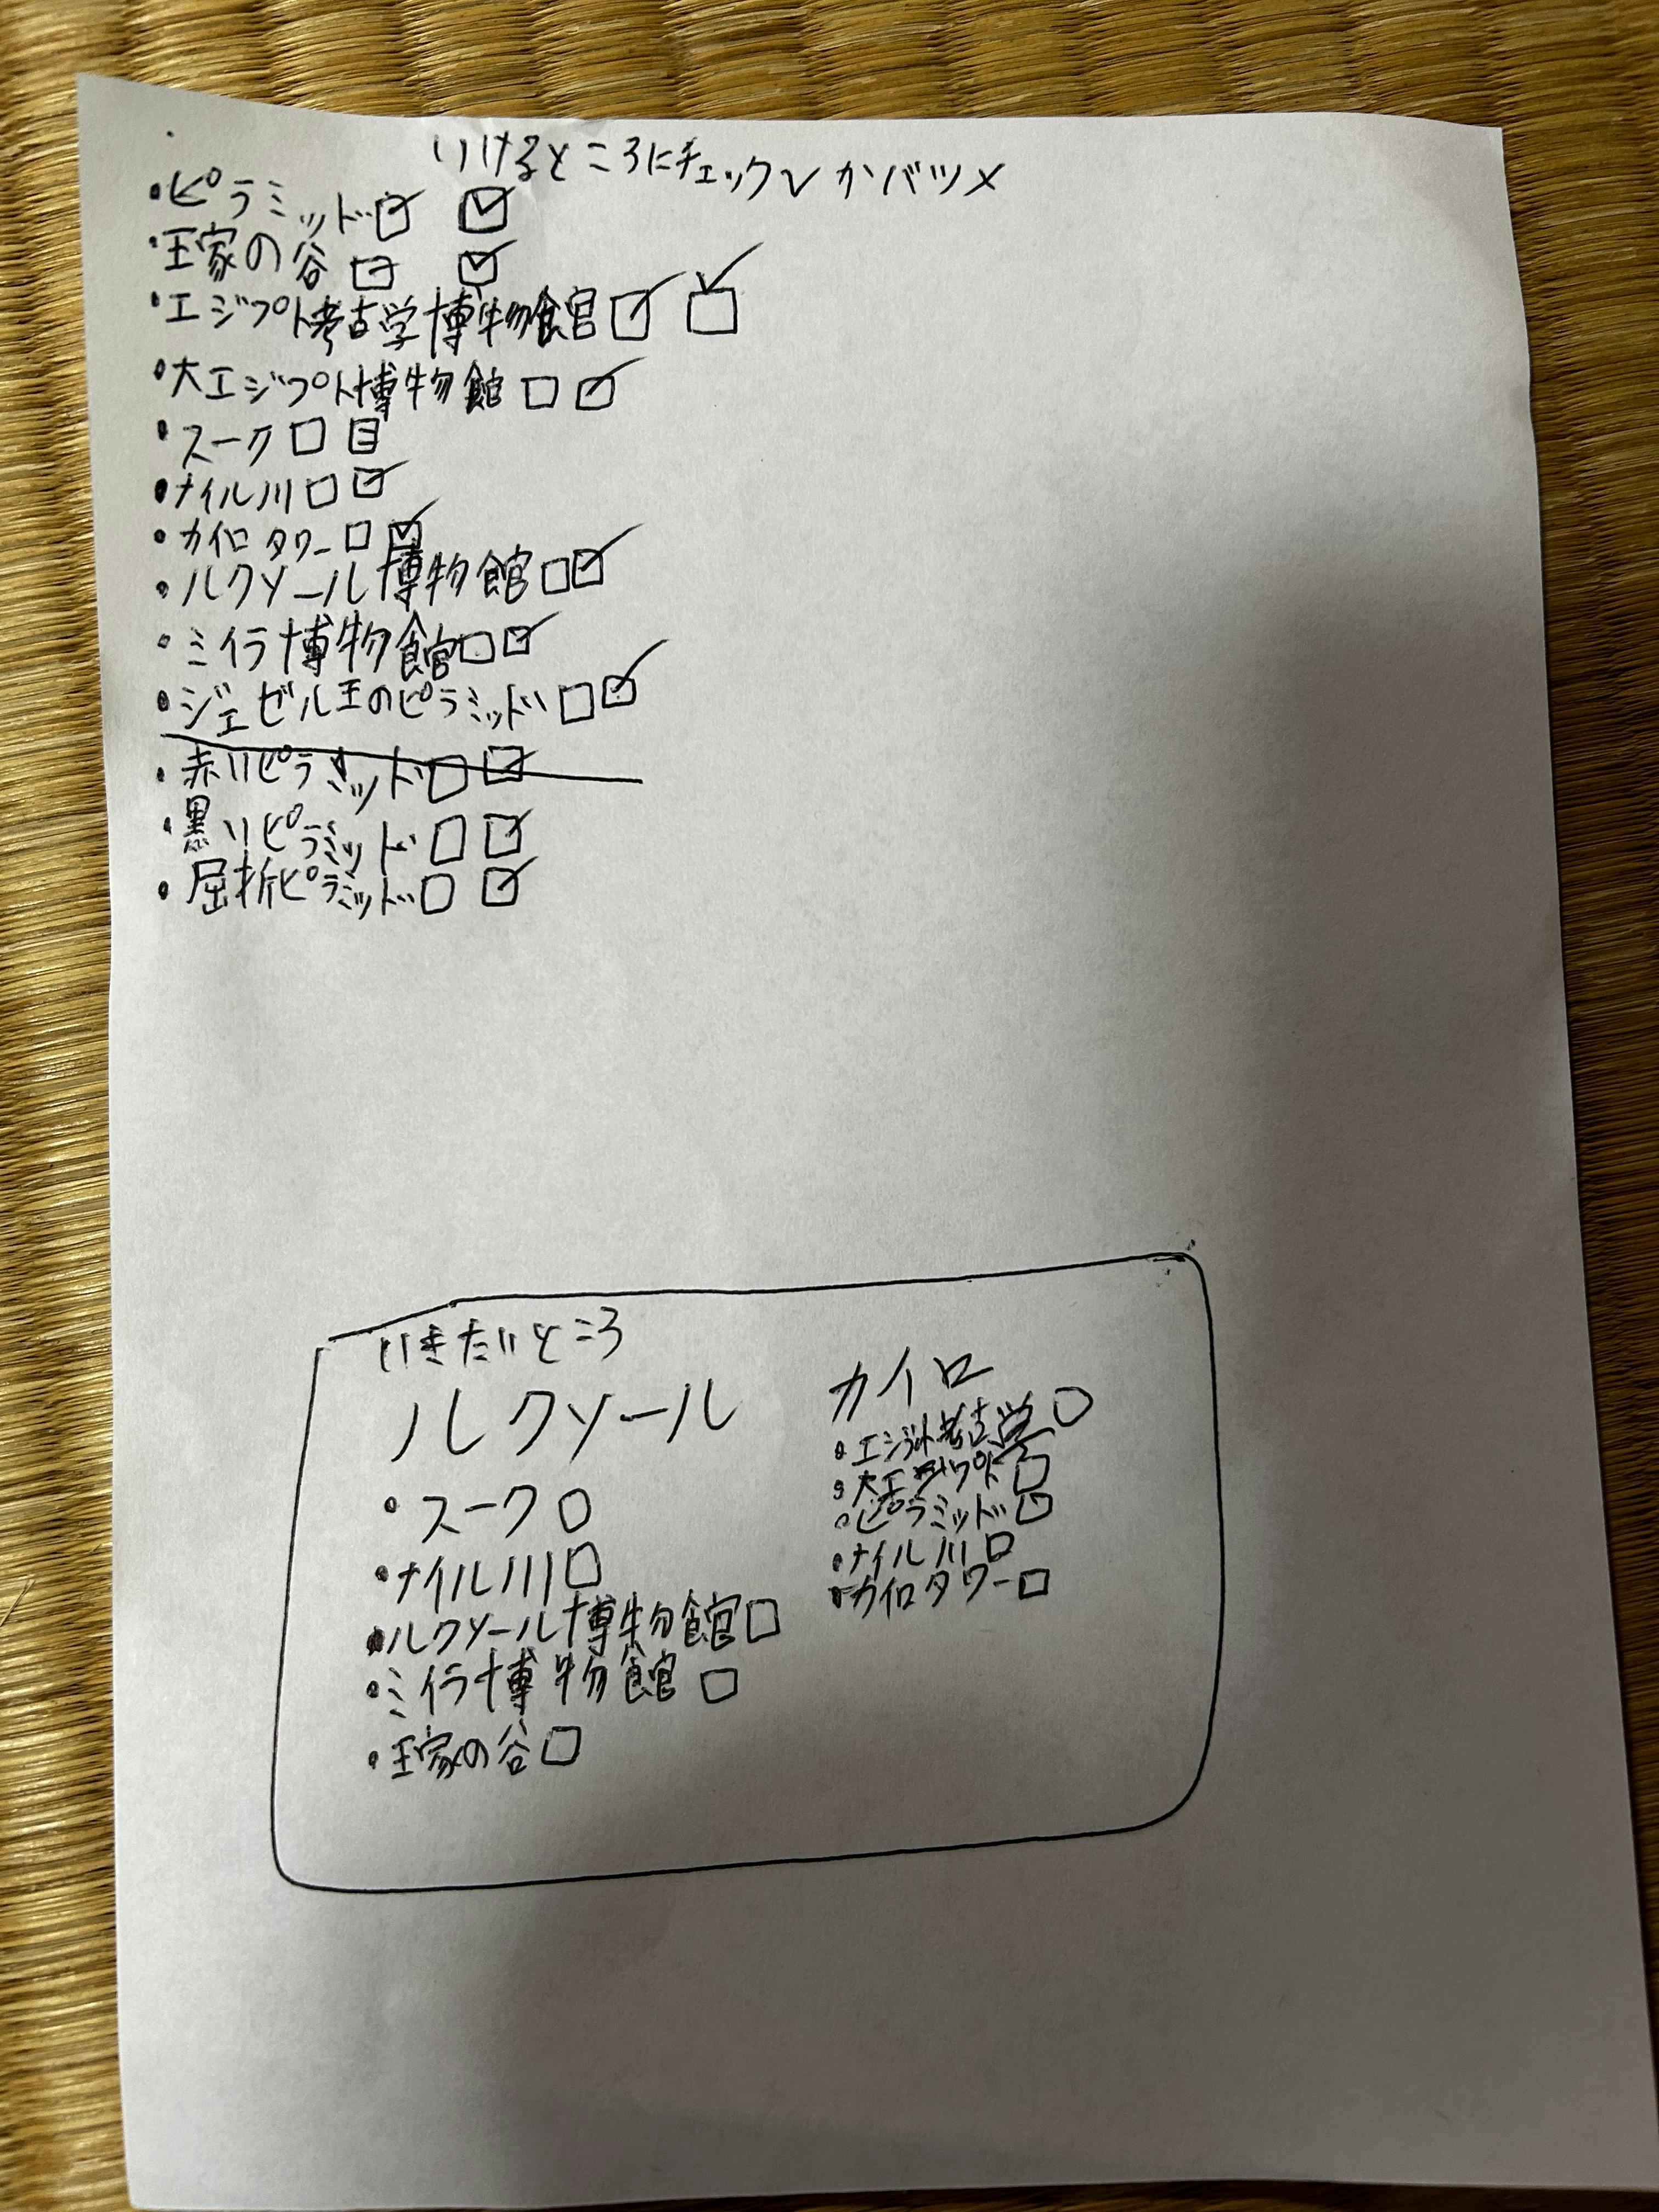 いけるところにチェック✓かバツ×
・ピラミッド☑ ☑
・王家の谷☐ ☑
・エジプト考古学博物館☑ ☑
・大エジプト博物館☐ ☑
・スーク☐ ☐
・ナイル川☐ ☑
・カイロタワー☐ ☑
・ルクソール博物館☐☑
・ミイラ博物館☐☑
・ジェゼル王のピラミッド☐☑
・赤いピラミッド☐ ☑
・黒いピラミッド☐ ☑
・屈折ピラミッド☐ ☑
いきたいところ
ルクソール
・スーク☐
・ナイル川☐
・ルクソール博物館☐
・ミイラ博物館☐
・王家の谷☐
カイロ
・エジプト考古学☐
・大エジプト☐
・ピラミッド☐
・ナイル川☐
・カイロタワー☐